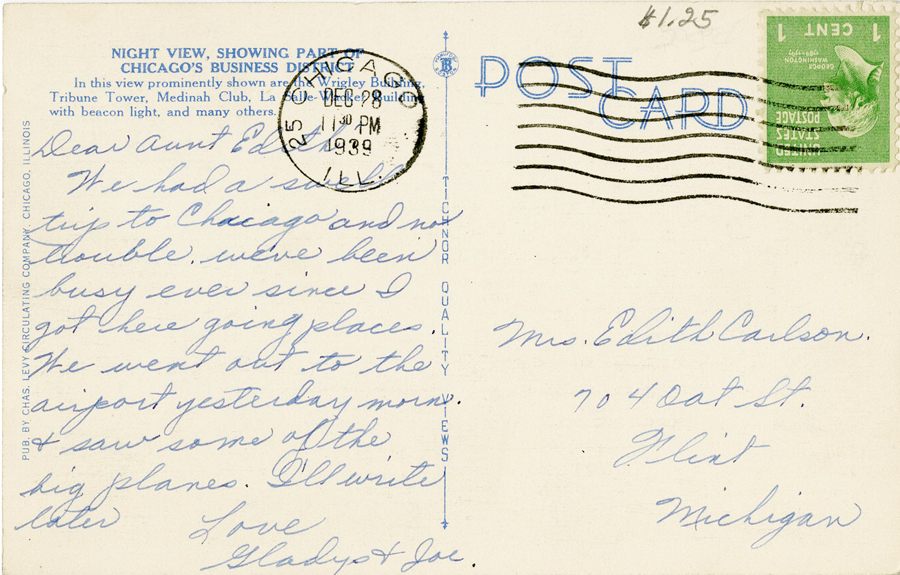 $1.25
NIGHT VIEW, SHOWING PART OF
CHICAGO'S BUSINESS DISTRICT
In this view prominently shown are the Wrigley Building,
Tribune Tower, Medinah Club, La Salle-Wacker Building
with beacon light, and many others.
CHICAGO
25
DEC 28
11 30 PM
1939
ILL.
POST CARD
1 CENT 1
GEORGE
WASHINGTON
1789-1797
UNITED
STATES
POSTAGE
Dear Aunt Edith,
We had a swell
trip to Chacago and no
trouble. we've been
busy ever since I
got here going places.
We went out to the
airport yesterday morn.
& saw some of the
big planes. I'll write
later
Love
Gladys & Joe.
Mrs. Edith Carlson.
704 Oat St.
Flint
Michigan
PUB. BY CHAS. LEVY CIRCULATING COMPANY, CHICAGO, ILLINOIS
TICHNOR QUALITY VIEWS